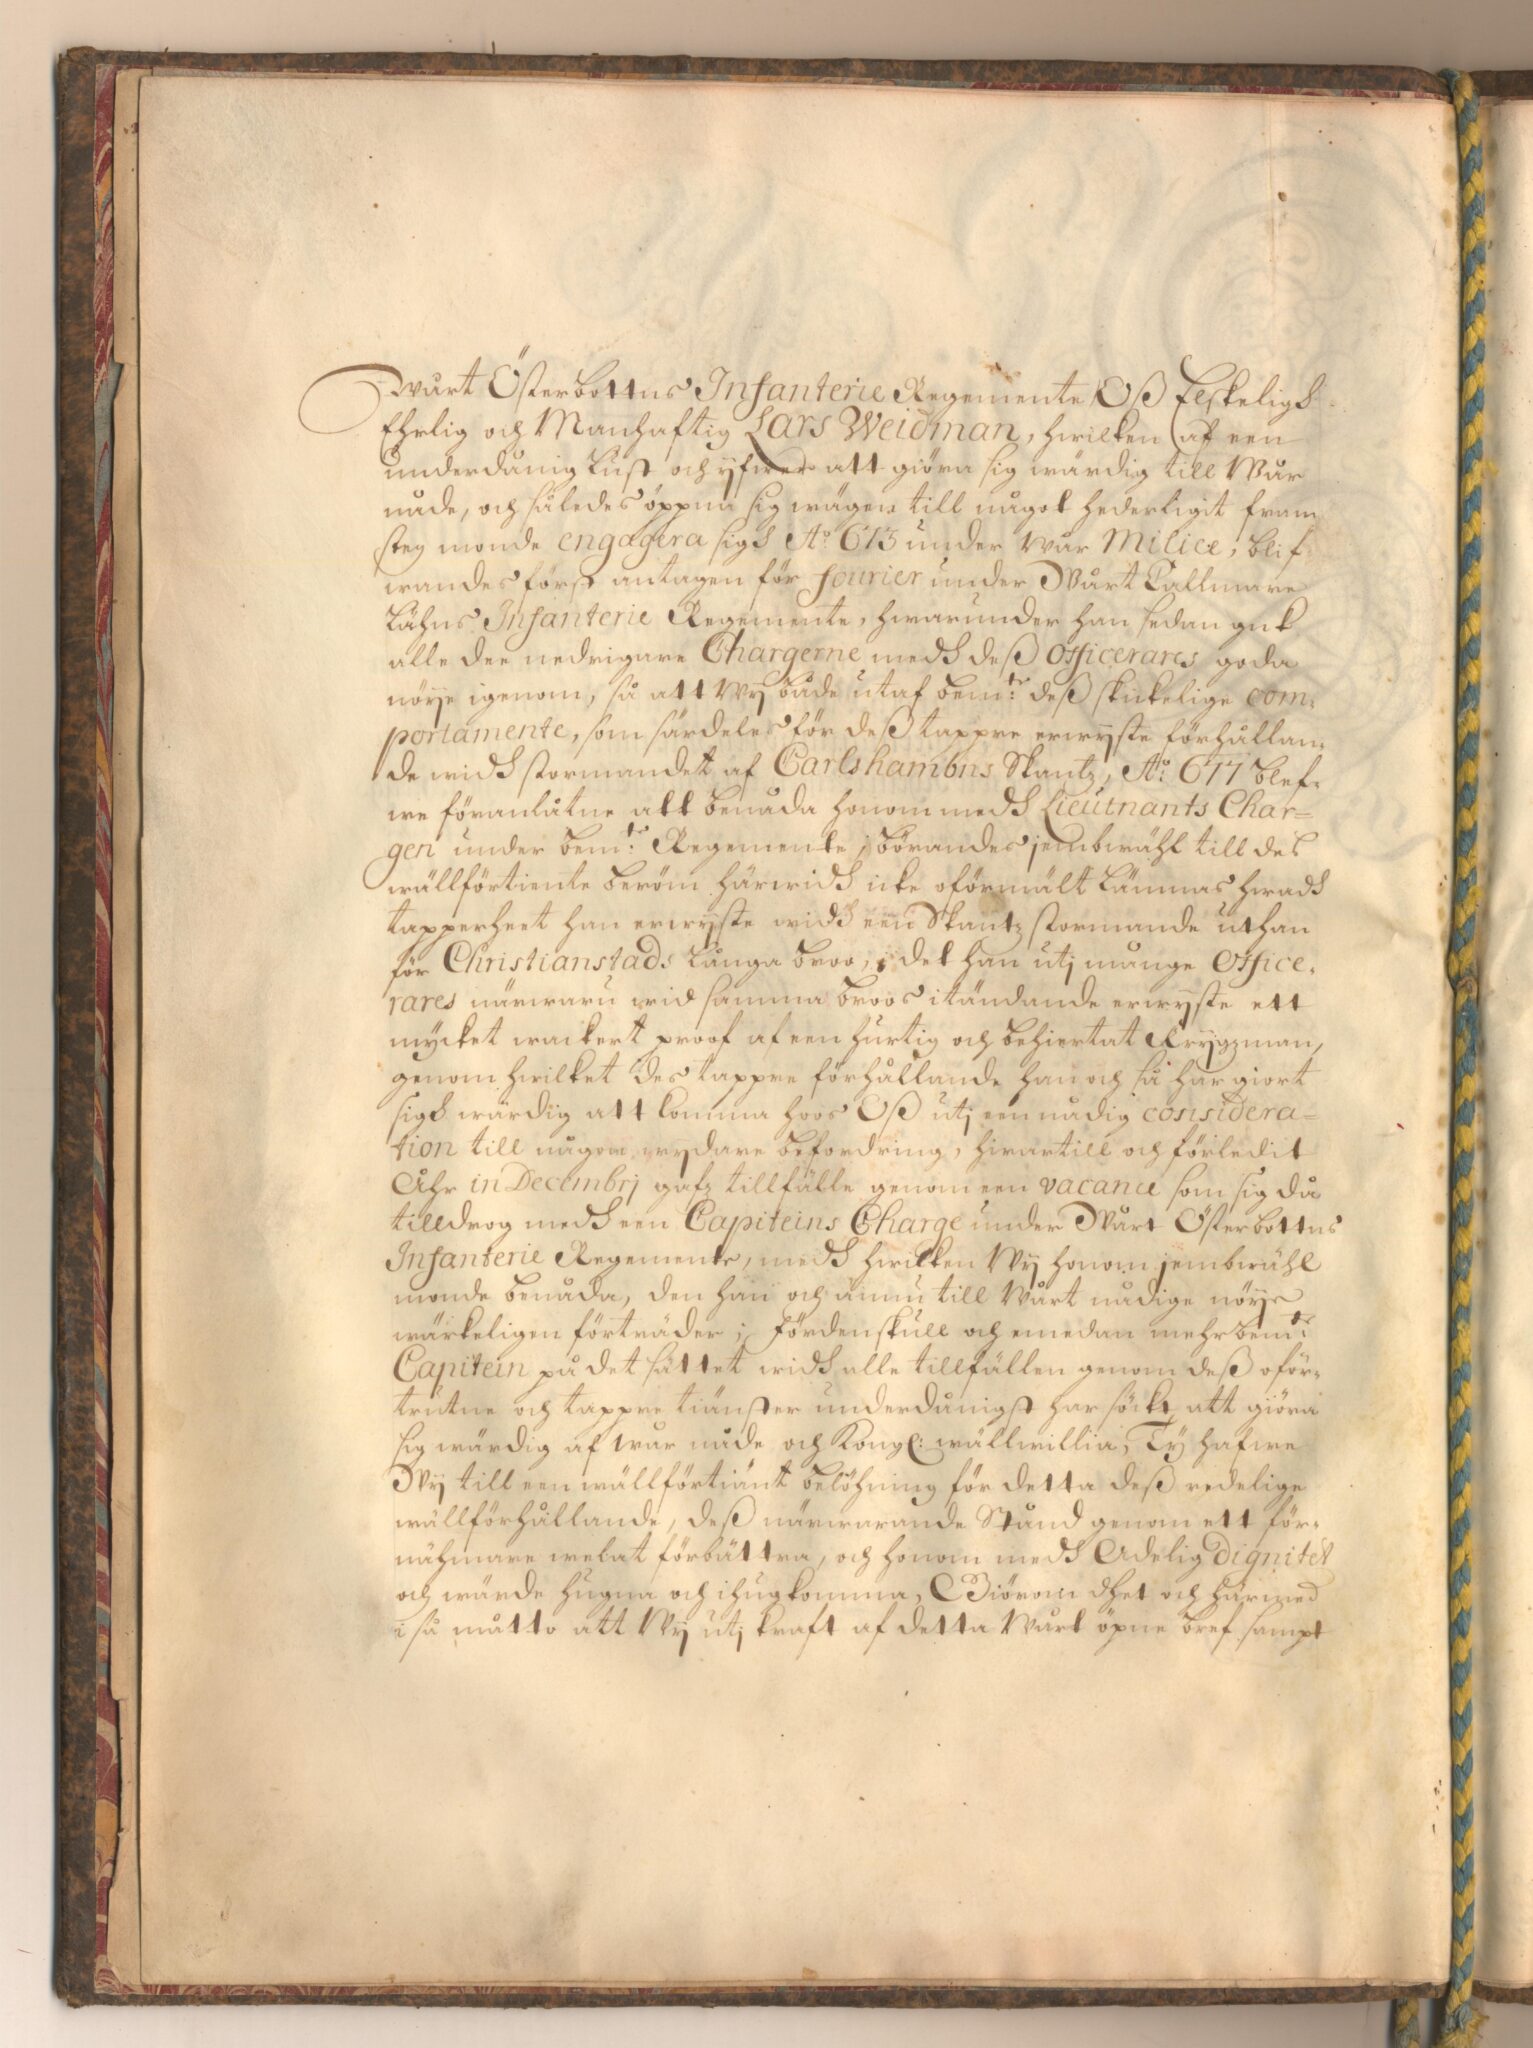 Wårt Österbottns Infanterie Regemente Oß Elskeligh
Ehrlig och Manhaftig Lars Weidman, hwilken af een
underdånig lust och yfwer att giöra sig wärdig till Wår
nåde, och således öppna sig wägen till något hederligit fram
steg monde engagera sigh A:o 673 under wår Milice, blif-
wandes först antagen för fourier under Wårt Callmare
Lähns Infanterie Regemente, hwarunder han sedan gick
alle dee nedrigare Chargerne medh deß Officerares goda
nöye igenom, så att Wy både utaf bem:te deß skickelige com-
portamente, som särdeles för deß tappre erwyste förhållan-
de widh stormandet af Carlshambns Skantz, A:o 677 blef-
we föranlåtne att benåda honom medh Lieutnants Char=
gen under bem:te Regemente; börandes jembwähl till des
wällförtiente beröm härwidh icke oförmält lämnas hwadh
tapperheet han erwyste widh een Skantz stormande uthan
för Christianstads långa broo, i det han utj månge Office-
rares närwaru wid samma broos itändande erwyste ett
mycket wackert proof af een hurtig och behiertat Krygzman,
genom hwilket des tappre förhållande han och så har giort
sigh wärdig att komma hoos Oß utj een nådig considera=
tion till någon wydare befordring, hwartill och förledit
Åhr in Decembrj gafz tillfälle genom een vacance som sig då
tilldrog medh een Capiteins Charge under Wårt Österbottns
Infanterie Regemente, medh hwilken Wy honom jembwähl
monde benåda, den han och ännu till Wårt nådige nöye
wärkeligen förträder; Fördenskull och emedan mehrbem:te
Capitein på det sättet widh alle tillfällen genom deß oför-
trutne och tappre tiänster underdånigst har sökt att giöra
sig wärdig af wår nåde och Kongl: wällwillia, Ty hafwe
Wy till een wällförtiänt belöhning för detta deß redelige
wällförhållande, deß närwarande Stånd genom ett för-
nähmare welat förbättra, och honom medh Adelig dignitet
och wärde hugna och ihugkomma, Giörom dhet och härmed
i så måtto att Wy utj kraft af detta Wårt öpne bref sampt